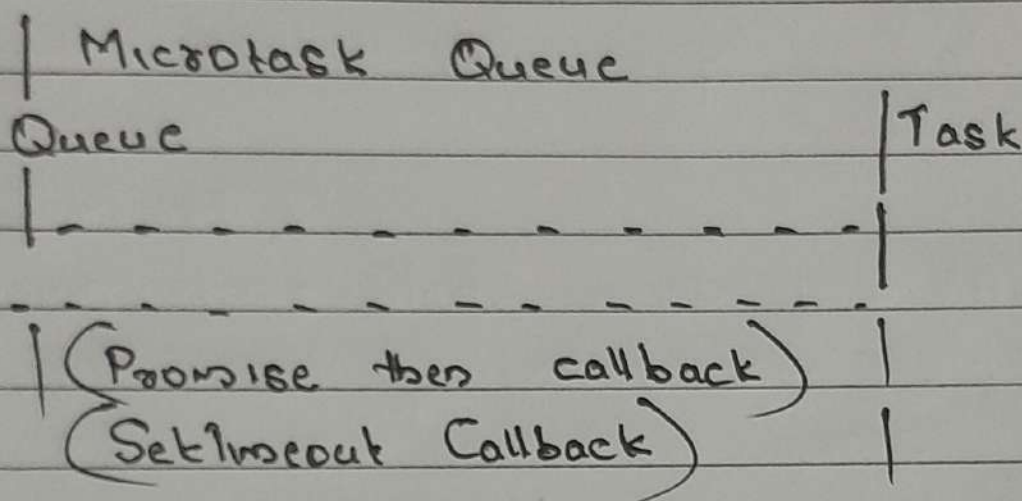 | Microtask Queue
Queue | Task
|- - - - - - - - - - -|
- - - - - - - - - - - -
| (Promise then callback) |
(SetTimeout Callback) |